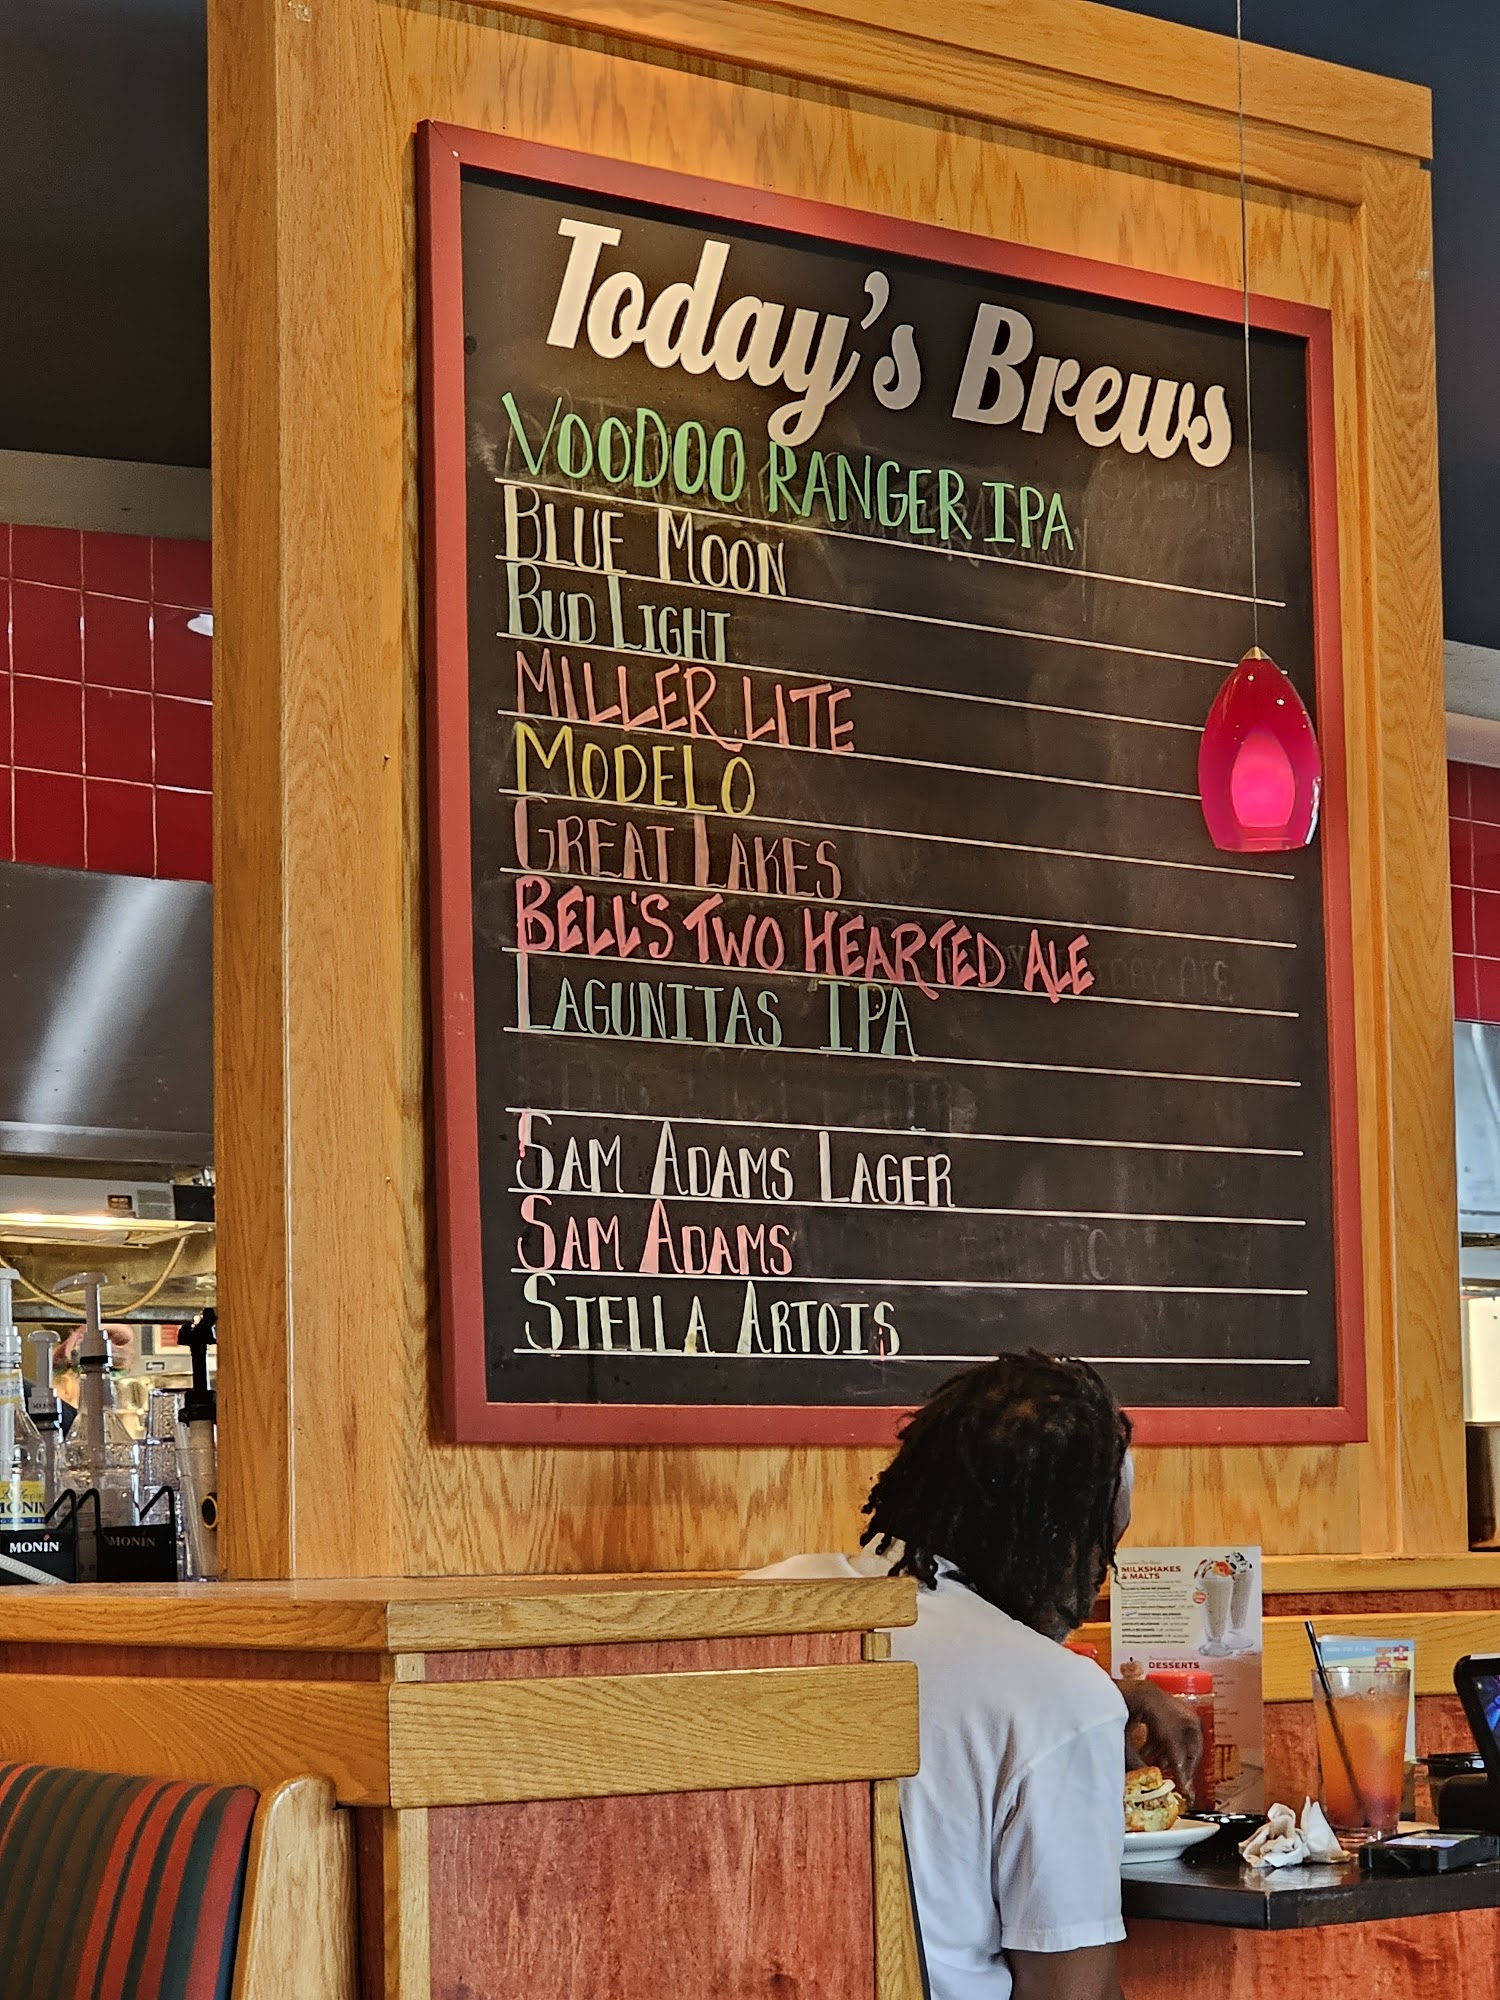 Today's Brews
VOODOO RANGER IPA
BLUE MOON
BUD LIGHT
MILLER LITE
MODELO
GREAT LAKES
BELL'S TWO HEARTED ALE
LAGUNITAS IPA
SAM ADAMS LAGER
SAM ADAMS
STELLA ARTOIS
MONIN
MONIN
MONIN
MILKSHAKES
& MALTS
DESSERTS